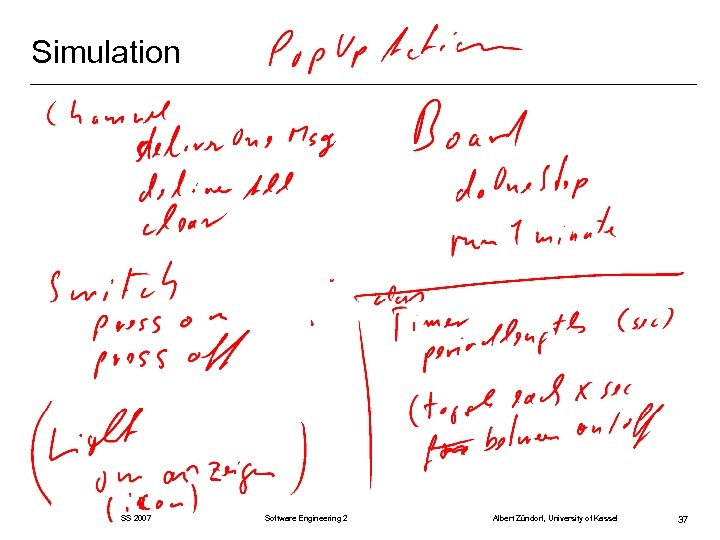 Simulation
PopUp Action
Channel
deliver One Msg
deliver All
clear
Board
doOneStep
run 1 minute
Switch
press on
press off
class
Timer
period length (sec)
(toggel each x sec
between on/off
(Light
on anzeigen
(ikon)
)
SS 2007
Software Engineering 2
Albert Zündorf, University of Kassel
37